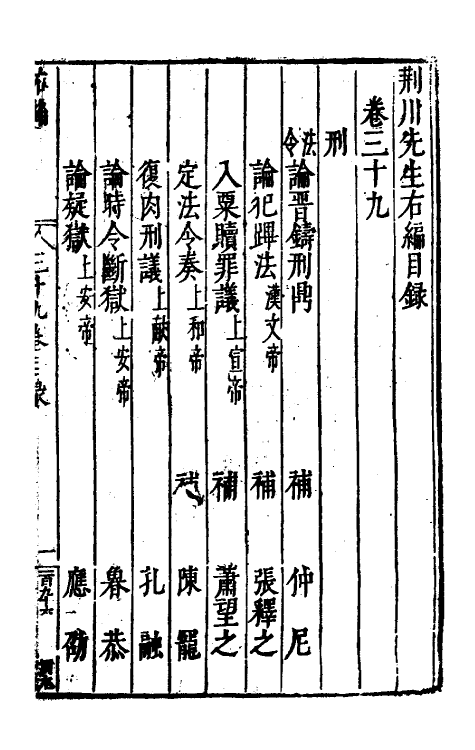 荆川先生右編目録
卷三十九
刑
法令 論晋鑄刑鼎 補 仲尼
論犯蹕法 漢文帝 補 張釋之
入粟贖罪議 上宣帝 補 蕭望之
定法令奏 上和帝 補 陳寵
復肉刑議 上献帝 孔融
論時令斷獄 上安帝 魯恭
論疑獄 上安帝 應劭
右編 三十九卷目録 一